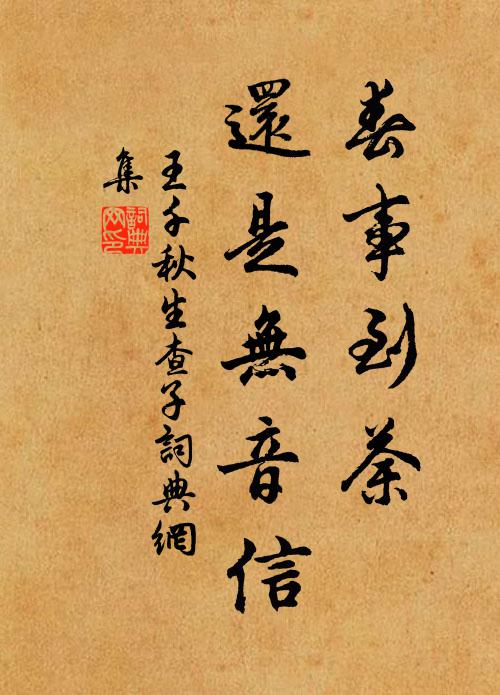 春事到荼
還是無音信
王千秋生查子詞典網
集
詞典
网印